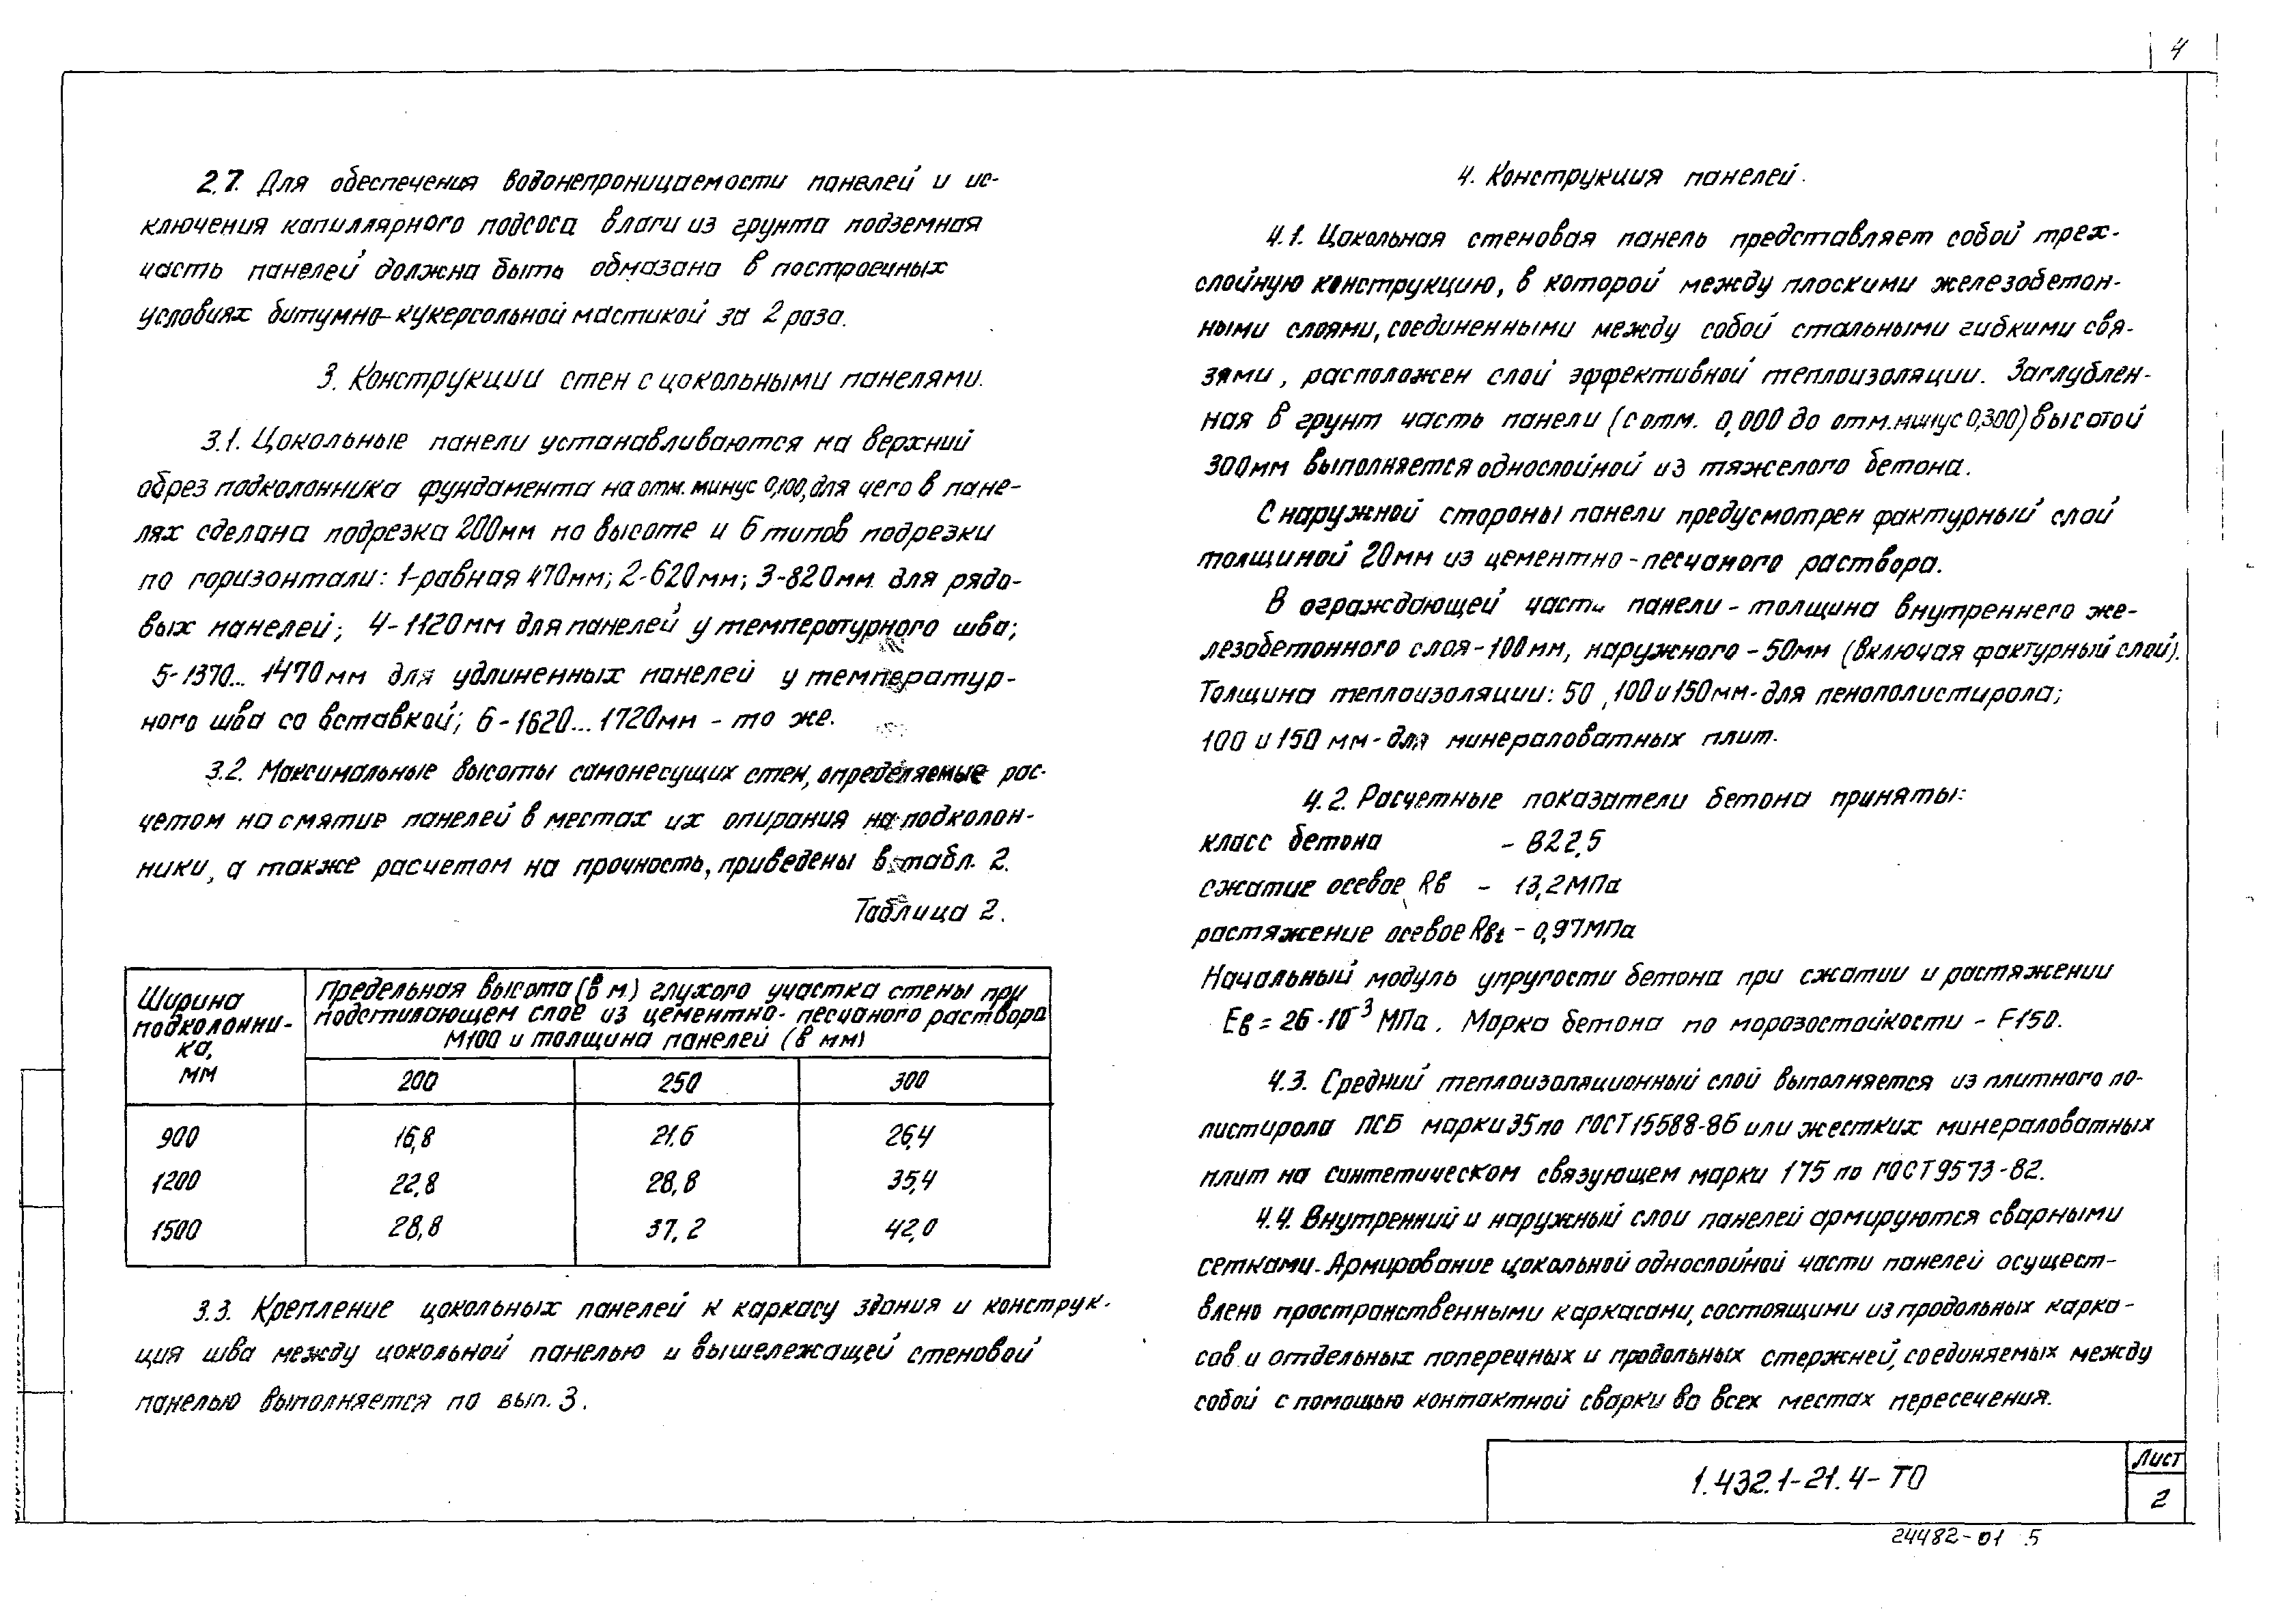 4
2.7. Для обеспечения водонепроницаемости панелей и ис-
ключения капиллярного подсоса влаги из грунта подземная
часть панелей должна быть обмазана в построечных
условиях битумно-кукерсольной мастикой за 2 раза.
3. Конструкции стен с цокольными панелями.
3.1. Цокольные панели устанавливаются на верхний
обрез подколонника фундамента на отм. минус 0,100, для чего в пане-
лях сделана подрезка 200мм по высоте и 6 типов подрезки
по горизонтали: 1-равная 470мм; 2-620мм; 3-820мм для рядо-
вых панелей; 4-1120мм для панелей у температурного шва;
5-1370... 1470мм для удлиненных панелей у температур-
ного шва со вставкой; 6-1620...1720мм - то же.
3.2. Максимальные высоты самонесущих стен, определяемые рас-
четом на смятие панелей в местах их опирания на подколон-
ники, а также расчетом на прочность, приведены в табл. 2.
Таблица 2.
Ширина
подколонни-
ка,
мм
Предельная высота (в м) глухого участка стены при
подстилающем слое из цементно-песчаного раствора
М100 и толщина панелей (в мм)
200 250 300
900 16,8 21.6 26,4
1200 22,8 28,8 35,4
1500 28,8 37,2 42,0
3.3. Крепление цокольных панелей к каркасу здания и конструк-
ция шва между цокольной панелью и вышележащей стеновой
панелью выполняется по вып. 3.
4. Конструкция панелей.
4.1. Цокольная стеновая панель представляет собой трех-
слойную конструкцию, в которой между плоскими железобетон-
ными слоями, соединенными между собой стальными гибкими свя-
зями, расположен слой эффективной теплоизоляции. Заглублен-
ная в грунт часть панели (с отм. 0,000 до отм. минус 0,300) высотой
300мм выполняется однослойной из тяжелого бетона.
С наружной стороны панели предусмотрен фактурный слой
толщиной 20мм из цементно-песчаного раствора.
В ограждающей части панели - толщина внутреннего же-
лезобетонного слоя-100мм, наружного - 50мм (включая фактурный слой).
Толщина теплоизоляции: 50, 100 и 150мм-для пенополистирола;
100 и 150 мм-для минераловатных плит.
4.2. Расчетные показатели бетона приняты:
класс бетона - В22,5
сжатие осевое Rв - 13,2МПа
растяжение осевое Rвt - 0,97МПа
Начальный модуль упругости бетона при сжатии и растяжении
Ев = 26·10⁻³ МПа. Марка бетона по морозостойкости - F150.
4.3. Средний теплоизоляционный слой выполняется из плитного по-
листирола ПСБ марки 35 по ГОСТ 15588-86 или жестких минераловатных
плит на синтетическом связующем марки 175 по ГОСТ 9573-82.
4.4. Внутренний и наружный слои панелей армируются сварными
сетками. Армирование цокольной однослойной части панелей осущест-
влено пространственными каркасами, состоящими из продольных карка-
сов и отдельных поперечных и продольных стержней, соединяемых между
собой с помощью контактной сварки во всех местах пересечения.
1.432.1-21.4-ТО
Лист
2
24482-01 5